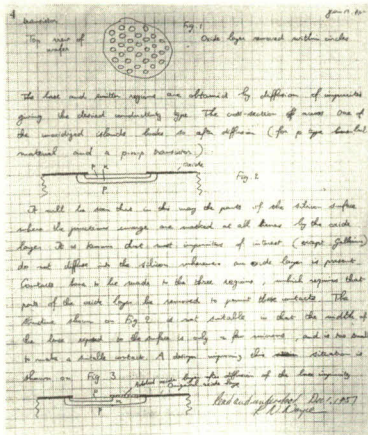 4
transistor
Top view of wafer
Fig. 1
Oxide layer removed within circles
The base and emitter regions are obtained by diffusion of impurities
giving the desired conductivity type. The cross-section across one of
the unoxidized islands looks so after diffusion (for p type
material and a pnp transistor.)
oxide
P n
P
Fig. 2
It will be seen that in this way the parts of the silicon surface
where the junctions emerge are masked at all times by the oxide
layer. It is known that most impurities of interest (except gallium)
do not diffuse into the silicon wherever an oxide layer is present.
Contacts have to be made to the three regions, which requires that
parts of the oxide layer be removed to permit these contacts. The
structure shown on Fig 2 is not suitable in that the width of
the base exposed to the surface is only a few microns, and is too small
to make a suitable contact. A design improving this situation is
shown on Fig 3
Added oxide layer after diffusion of the base impurity
original oxide layer
P n
P
Read and understood Dec 1, 1957